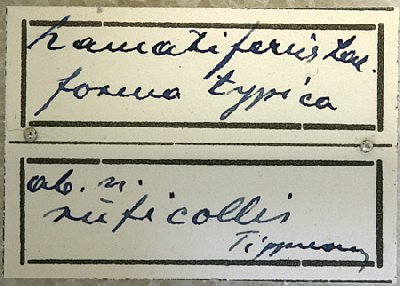 hamatiferus Lac.
forma typica
ab. n.
ruficollis
Tippmann